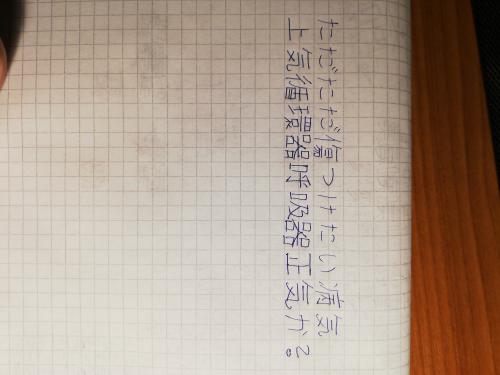 ただただ傷つけたい病気
上気循環器呼吸器正気か?